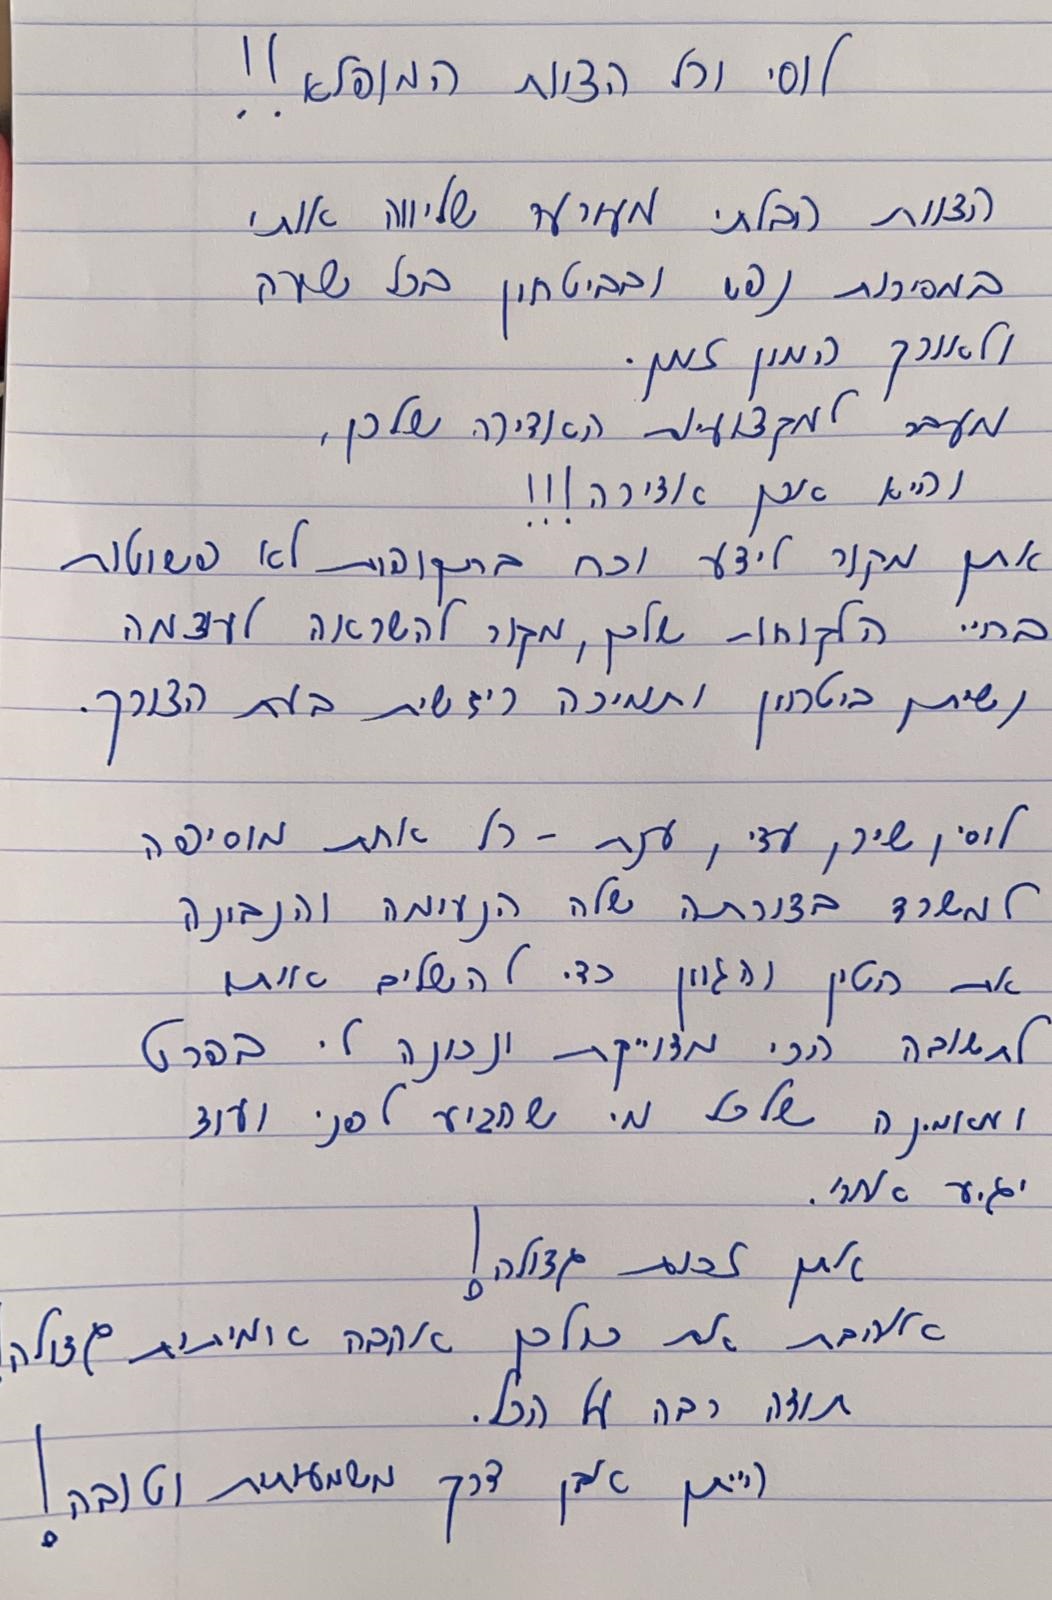 לוסי וכל הצוות המופלא!!
הצוות הבלתי מעורער שליווה אותי
במסירות נפש ובביטחון בכל שעה
ולאורך המון זמן.
מעבר למקצועיות האדירה שלכן,
והיא אכן אדירה!!!
אתן מקור לידע וכח בתקופות לא פשוטות
בחיי הלקוחות שלכן, מקור להשראה לעוצמה
נשית, ביטחון ותמיכה ריגשית בעת הצורך.
לוסי, שירן, עדי, ענת - כל אחת מוסיפה
למשרד בצורתה שלה הנעימה והנבונה
את הטין והגוון כדי להשלים אותו
לתשובה הכי מדוייקת ונכונה לי בפרט
ומאמינה שלכל מי שהגיע לפני ועוד
יגיע אחרי.
אתן לבנות גדולה!
אוהבת את כולכן אהבה אמיתית גדולה!
תודה רבה על הכל.
הייתן אבן דרך משמעותית וטובה!